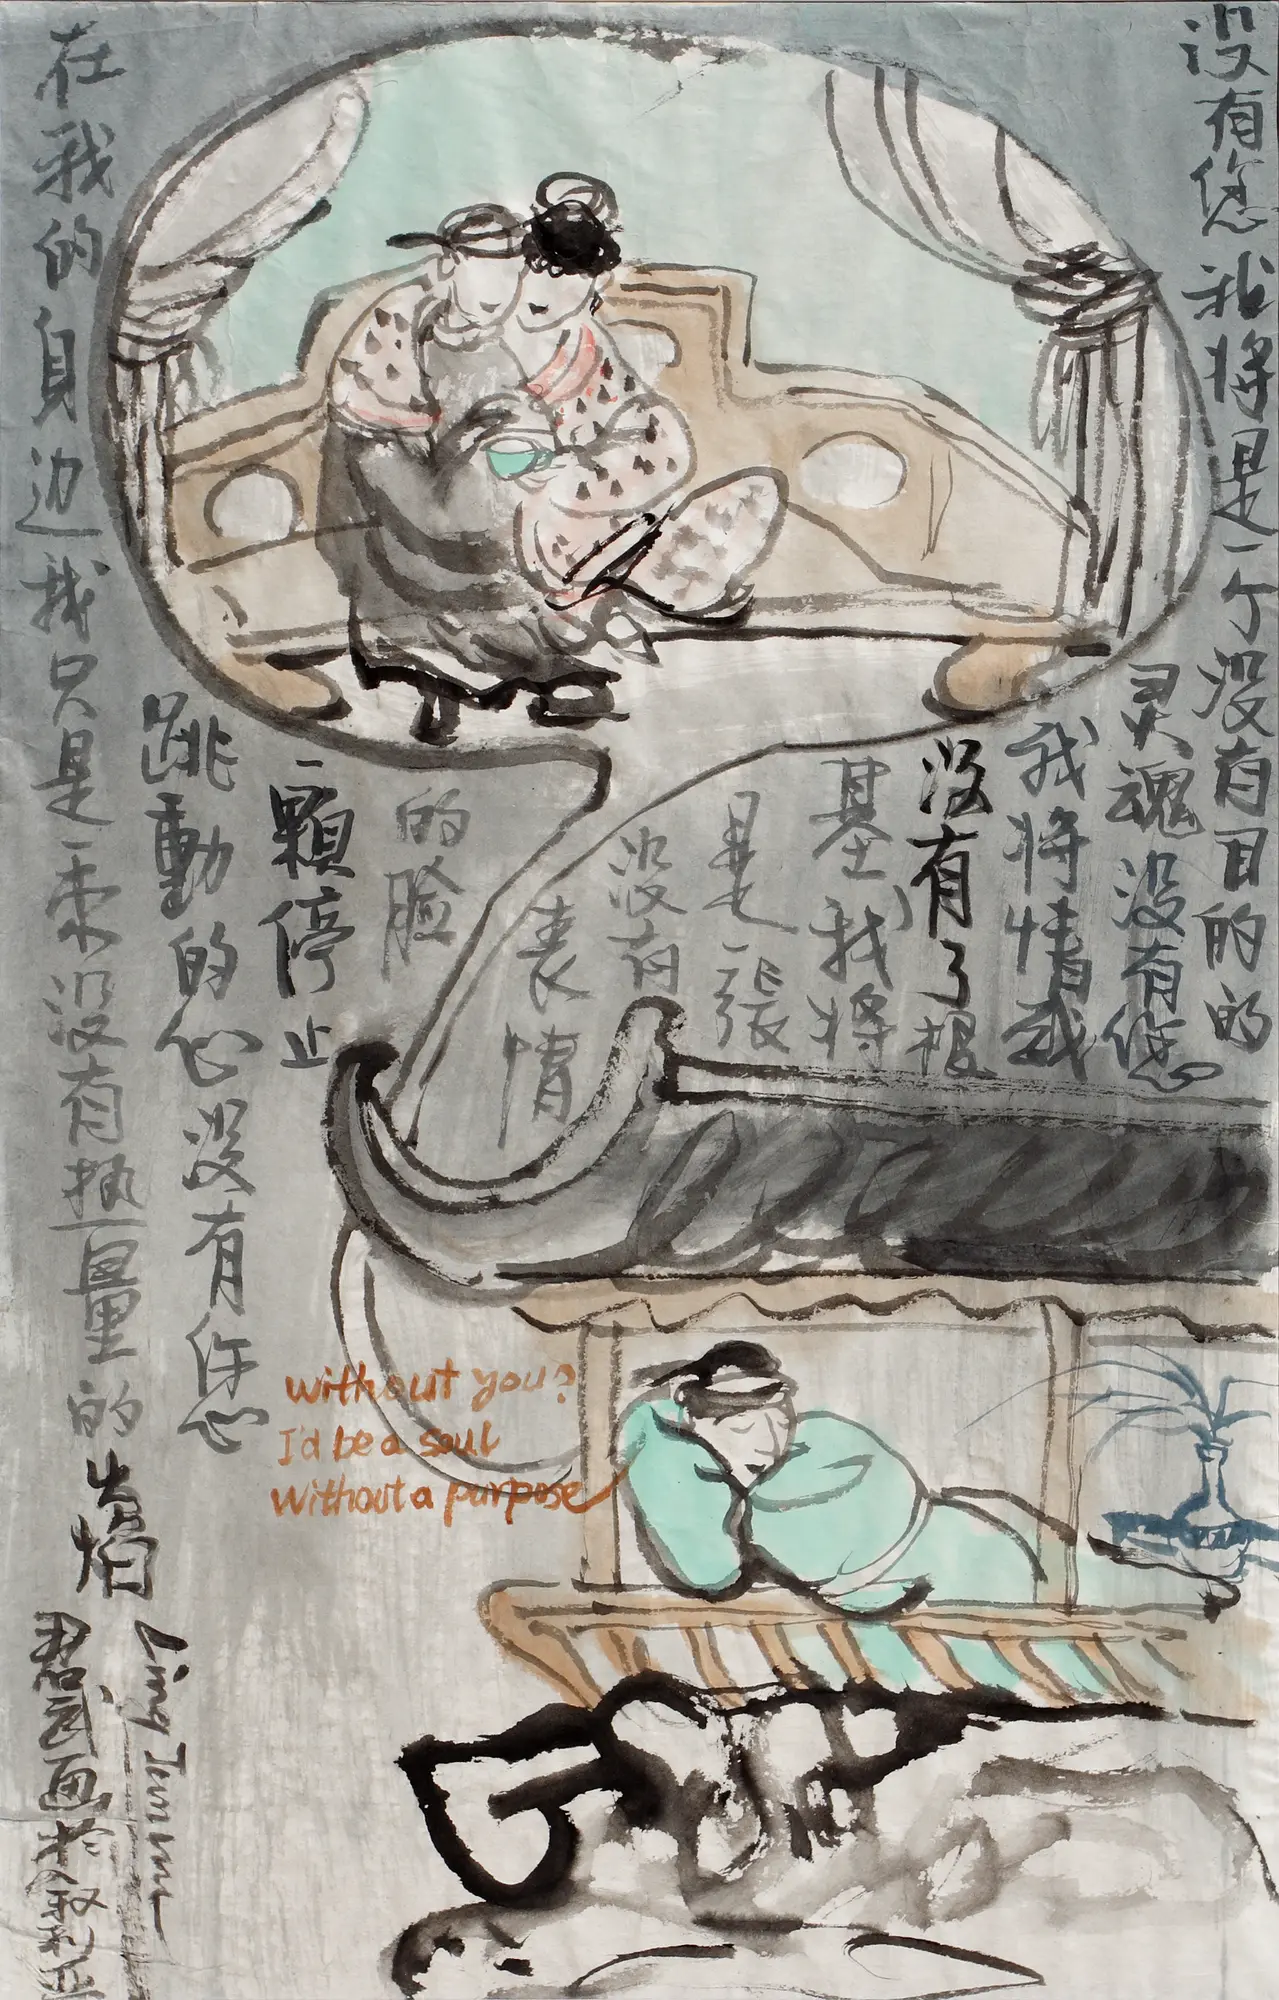 没有您我将是一个没有目的的
灵魂没有您
我将情感
没有了根
基我将
是一張
没有
表情
的脸
一顆停止
跳動的心没有您
在我的身边我只是一束没有热量的火焰
without you?
I'd be a soul
without a purpose
Ling
画於